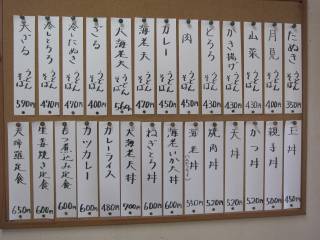 たぬき うどん そば 350円
月見 うどん そば 400円
山菜 うどん そば 430円
かき揚げ うどん そば 430円
とろろ うどん そば 430円
肉 うどん そば 450円
カレー うどん そば 450円
大海老天 うどん そば
ざる うどん そば 400円
冷したぬき うどん そば 470円
冷しとろろ うどん そば 470円
天ざる うどん そば 590円
玉丼 450円
親子丼 500円
かつ丼 520円
天丼 520円
焼肉丼 550円
海老丼 550円
海老いか天丼 600円
ねぎとろ丼 600円
大海老天丼 700円
カレーライス 480円
カツカレー 600円
もつ煮込み定食 600円
生姜焼き定食 600円
天婦羅定食 650円